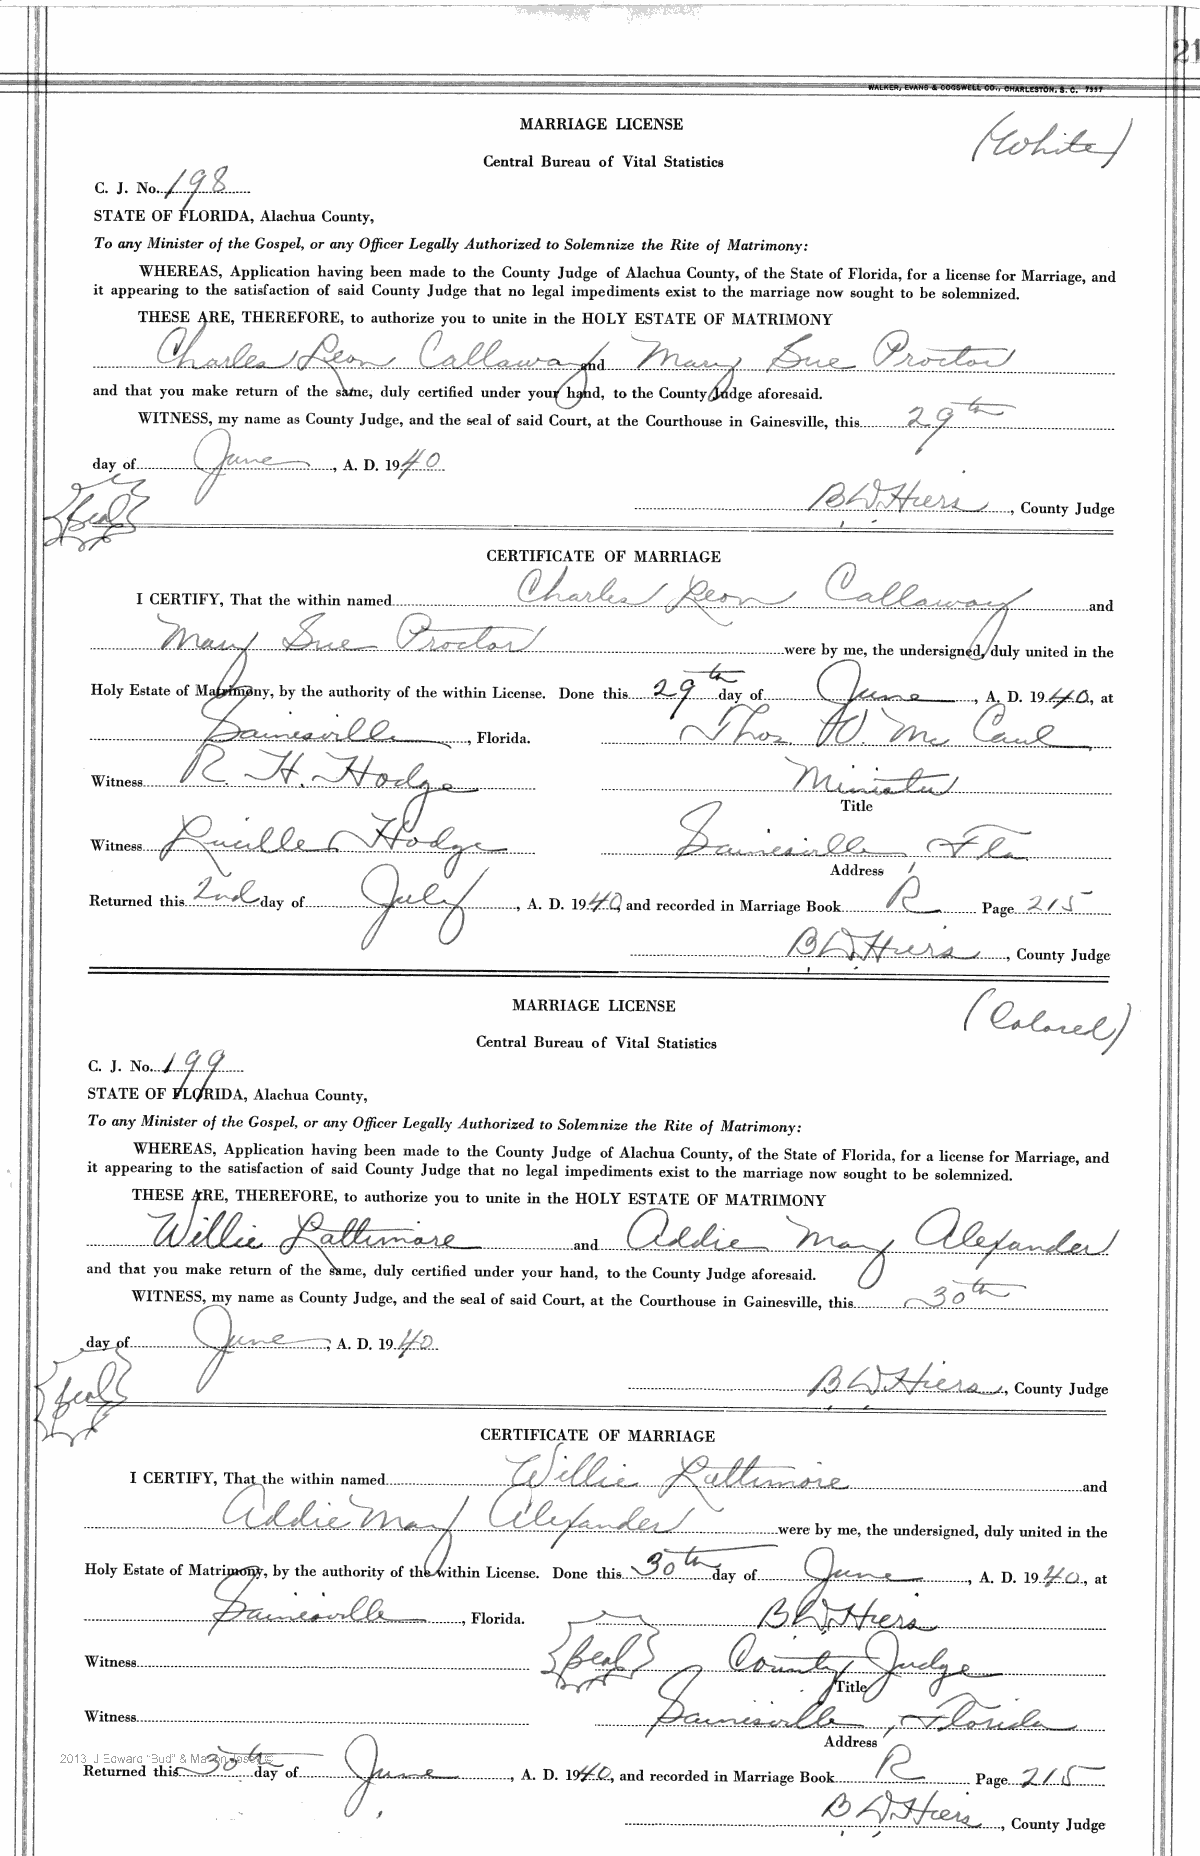 21
WALKER, EVANS & COGSWELL CO., CHARLESTON, S. C. 7557
MARRIAGE LICENSE
(White)
Central Bureau of Vital Statistics
C. J. No. 198
STATE OF FLORIDA, Alachua County,
To any Minister of the Gospel, or any Officer Legally Authorized to Solemnize the Rite of Matrimony:
WHEREAS, Application having been made to the County Judge of Alachua County, of the State of Florida, for a license for Marriage, and
it appearing to the satisfaction of said County Judge that no legal impediments exist to the marriage now sought to be solemnized.
THESE ARE, THEREFORE, to authorize you to unite in the HOLY ESTATE OF MATRIMONY
Charles Leon Callaway and Mary Sue Proctor
and that you make return of the same, duly certified under your hand, to the County Judge aforesaid.
WITNESS, my name as County Judge, and the seal of said Court, at the Courthouse in Gainesville, this 29th
day of June, A. D. 1940
(Seal) B D Hiers, County Judge
CERTIFICATE OF MARRIAGE
I CERTIFY, That the within named Charles Leon Callaway and
Mary Sue Proctor were by me, the undersigned, duly united in the
Holy Estate of Matrimony, by the authority of the within License. Done this 29th day of June, A. D. 1940, at
Gainesville, Florida. Thos. W. Mc Caul
Witness R. H. Hodge Minister
Title
Witness Lucille Hodge Gainesville, Fla
Address
Returned this 2nd day of July, A. D. 1940, and recorded in Marriage Book R Page 215
B D Hiers, County Judge
MARRIAGE LICENSE
(Colored)
Central Bureau of Vital Statistics
C. J. No. 199
STATE OF FLORIDA, Alachua County,
To any Minister of the Gospel, or any Officer Legally Authorized to Solemnize the Rite of Matrimony:
WHEREAS, Application having been made to the County Judge of Alachua County, of the State of Florida, for a license for Marriage, and
it appearing to the satisfaction of said County Judge that no legal impediments exist to the marriage now sought to be solemnized.
THESE ARE, THEREFORE, to authorize you to unite in the HOLY ESTATE OF MATRIMONY
Willie Lattimore and Addie May Alexander
and that you make return of the same, duly certified under your hand, to the County Judge aforesaid.
WITNESS, my name as County Judge, and the seal of said Court, at the Courthouse in Gainesville, this 30th
day of June, A. D. 1940
(Seal) B D Hiers, County Judge
CERTIFICATE OF MARRIAGE
I CERTIFY, That the within named Willie Lattimore and
Addie May Alexander were by me, the undersigned, duly united in the
Holy Estate of Matrimony, by the authority of the within License. Done this 30th day of June, A. D. 1940, at
Gainesville, Florida. B D Hiers
Witness (Seal) County Judge
Title
Witness Gainesville, Florida
Address
2013 J Edward "Bud" &
Returned this 30th day of June, A. D. 1940, and recorded in Marriage Book R Page 215
B D Hiers, County Judge